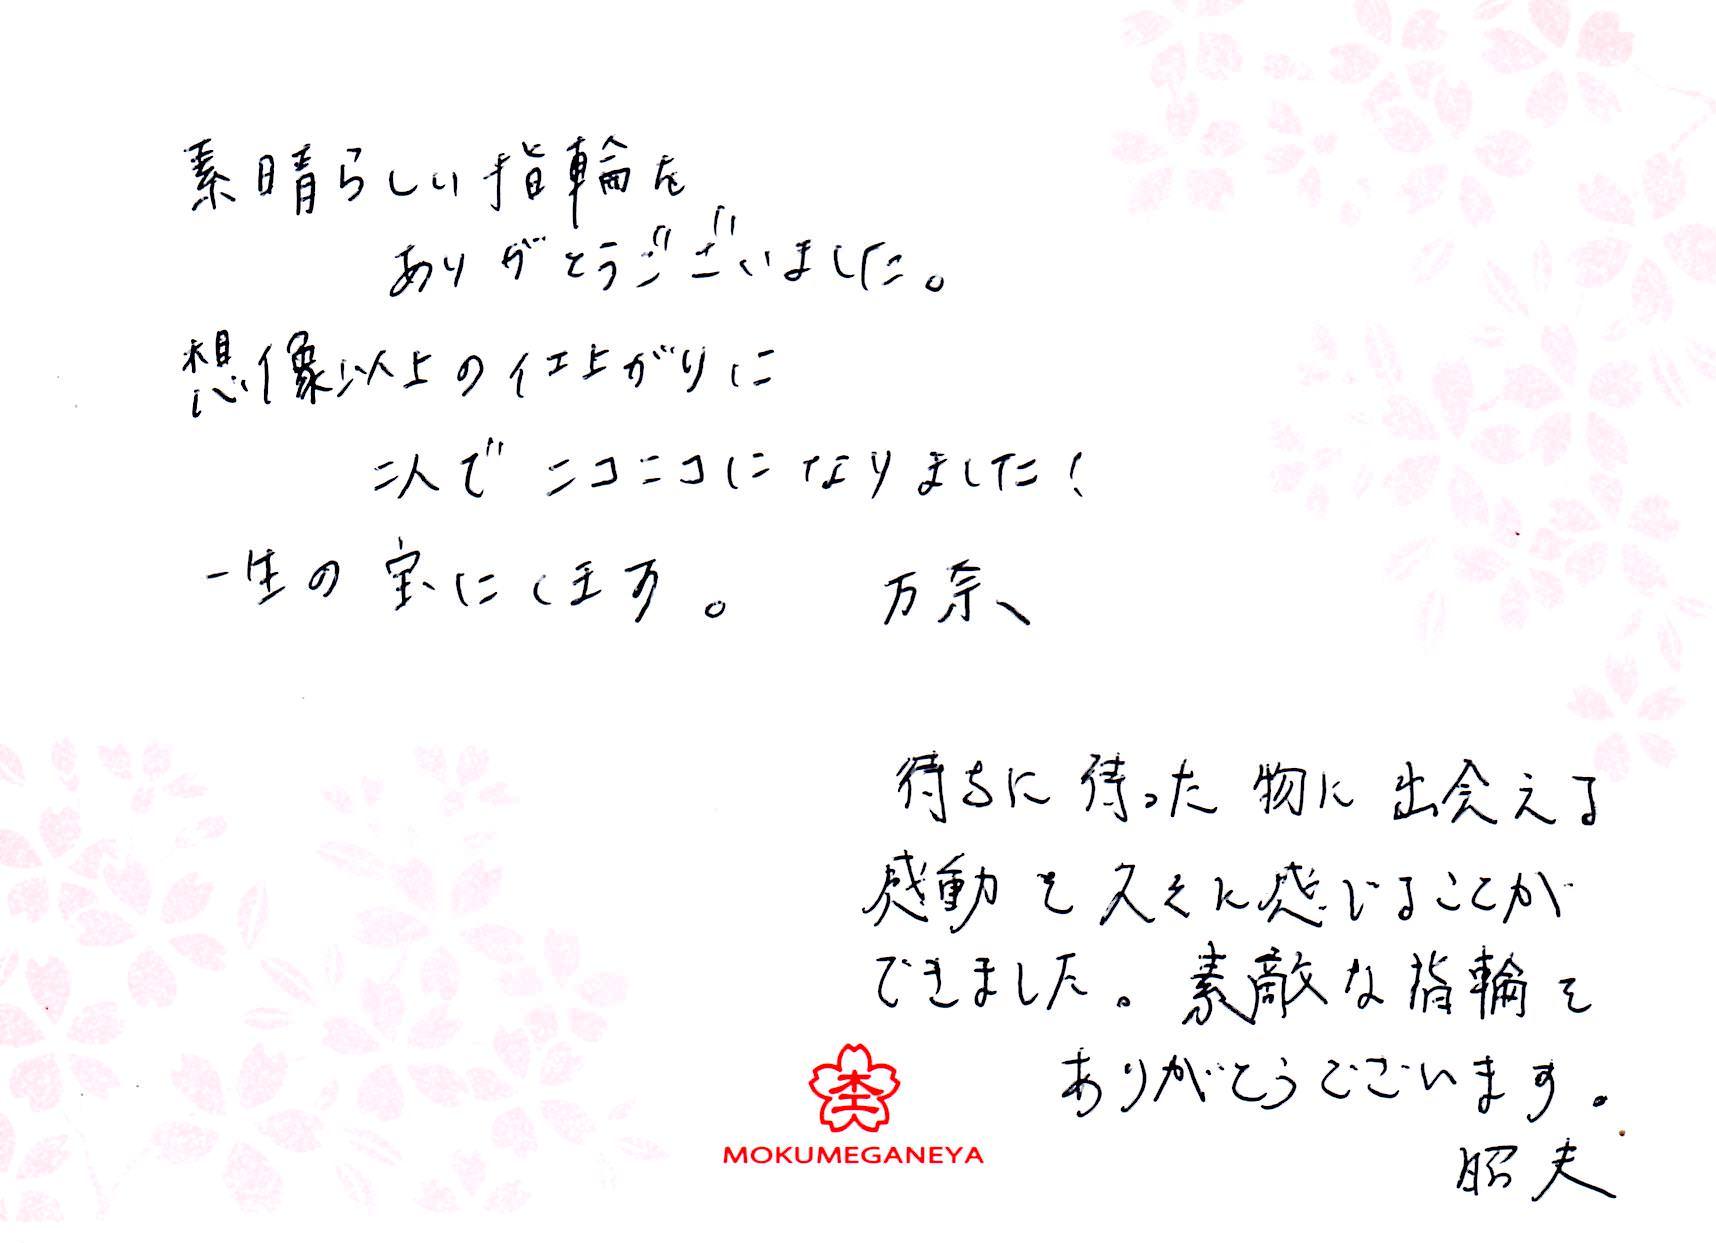 素晴らしい指輪を
ありがとうございました。
想像以上の仕上がりに
二人でニコニコになりました!
一生の宝にします。 万奈
待ちに待った物に出会える
感動を久々に感じることが
できました。素敵な指輪を
ありがとうございます。
昭夫
MOKUMEGANEYA